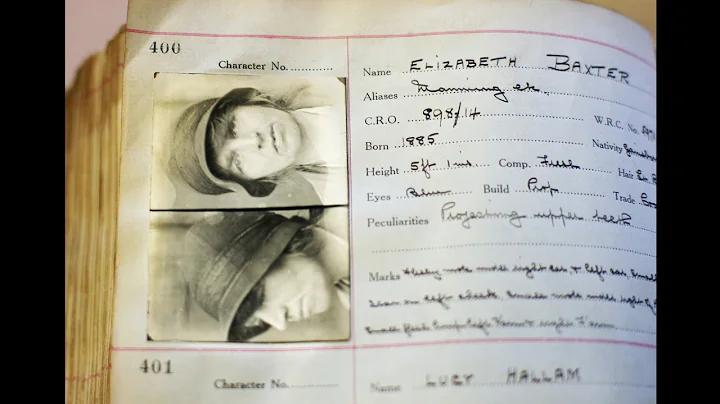 400
Character No.
Name ELIZABETH BAXTER
Aliases Manning etc.
C.R.O. 898/14 W.R.C. No.
Born 1885 Nativity
Height 5ft 1 ins Comp. Fresh Hair
Eyes Blue Build Prop Trade
Peculiarities Projecting upper teeth
Marks Fleshy mole under right ear, & left ear, small
scar on left cheek, small mole under right
small
401
Character No.
Name LUCY HALLAM